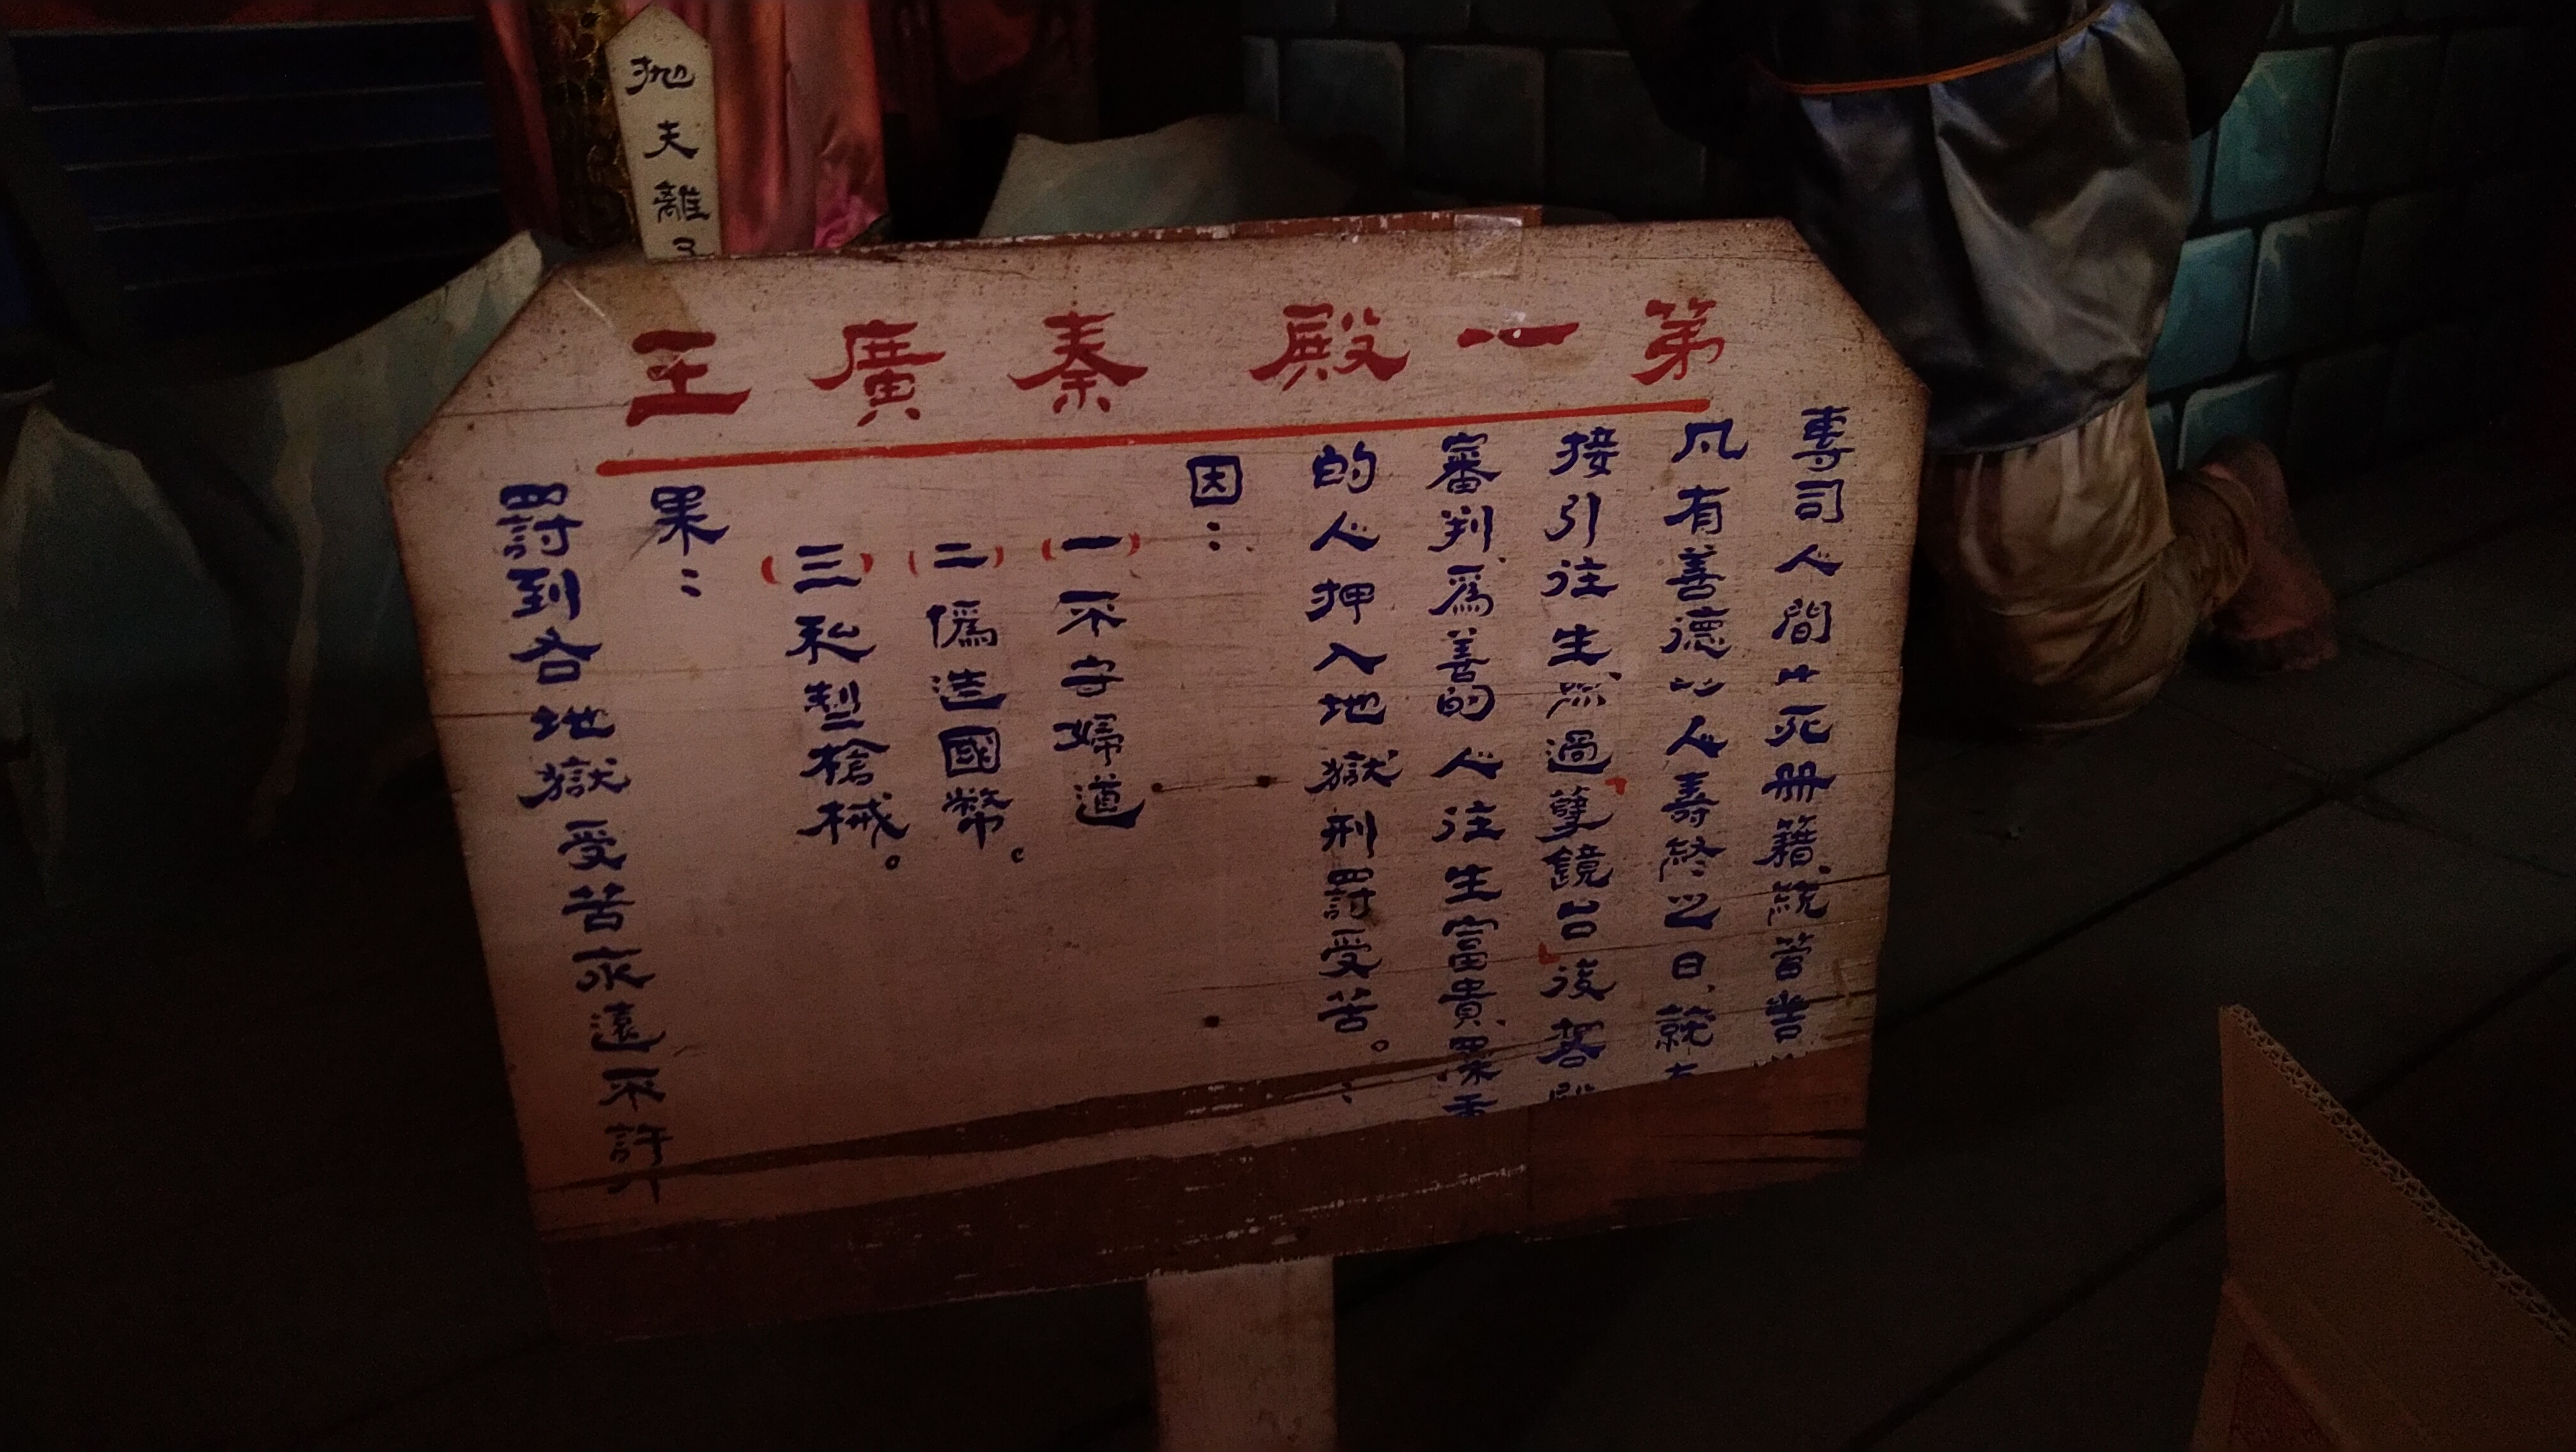 第一殿 秦廣王
專司人間生死册籍、統管吉
凡有善德之人壽終之日、就
接引往生、死過「孽鏡台」後各殿
審判、為善的人往生富貴、罪重
的人押入地獄刑罰受苦。
因：
(一)不守婦道
(二)偽造國幣。
(三)私製槍械。
果：
罰到各地獄受苦永遠不許
抛夫離子